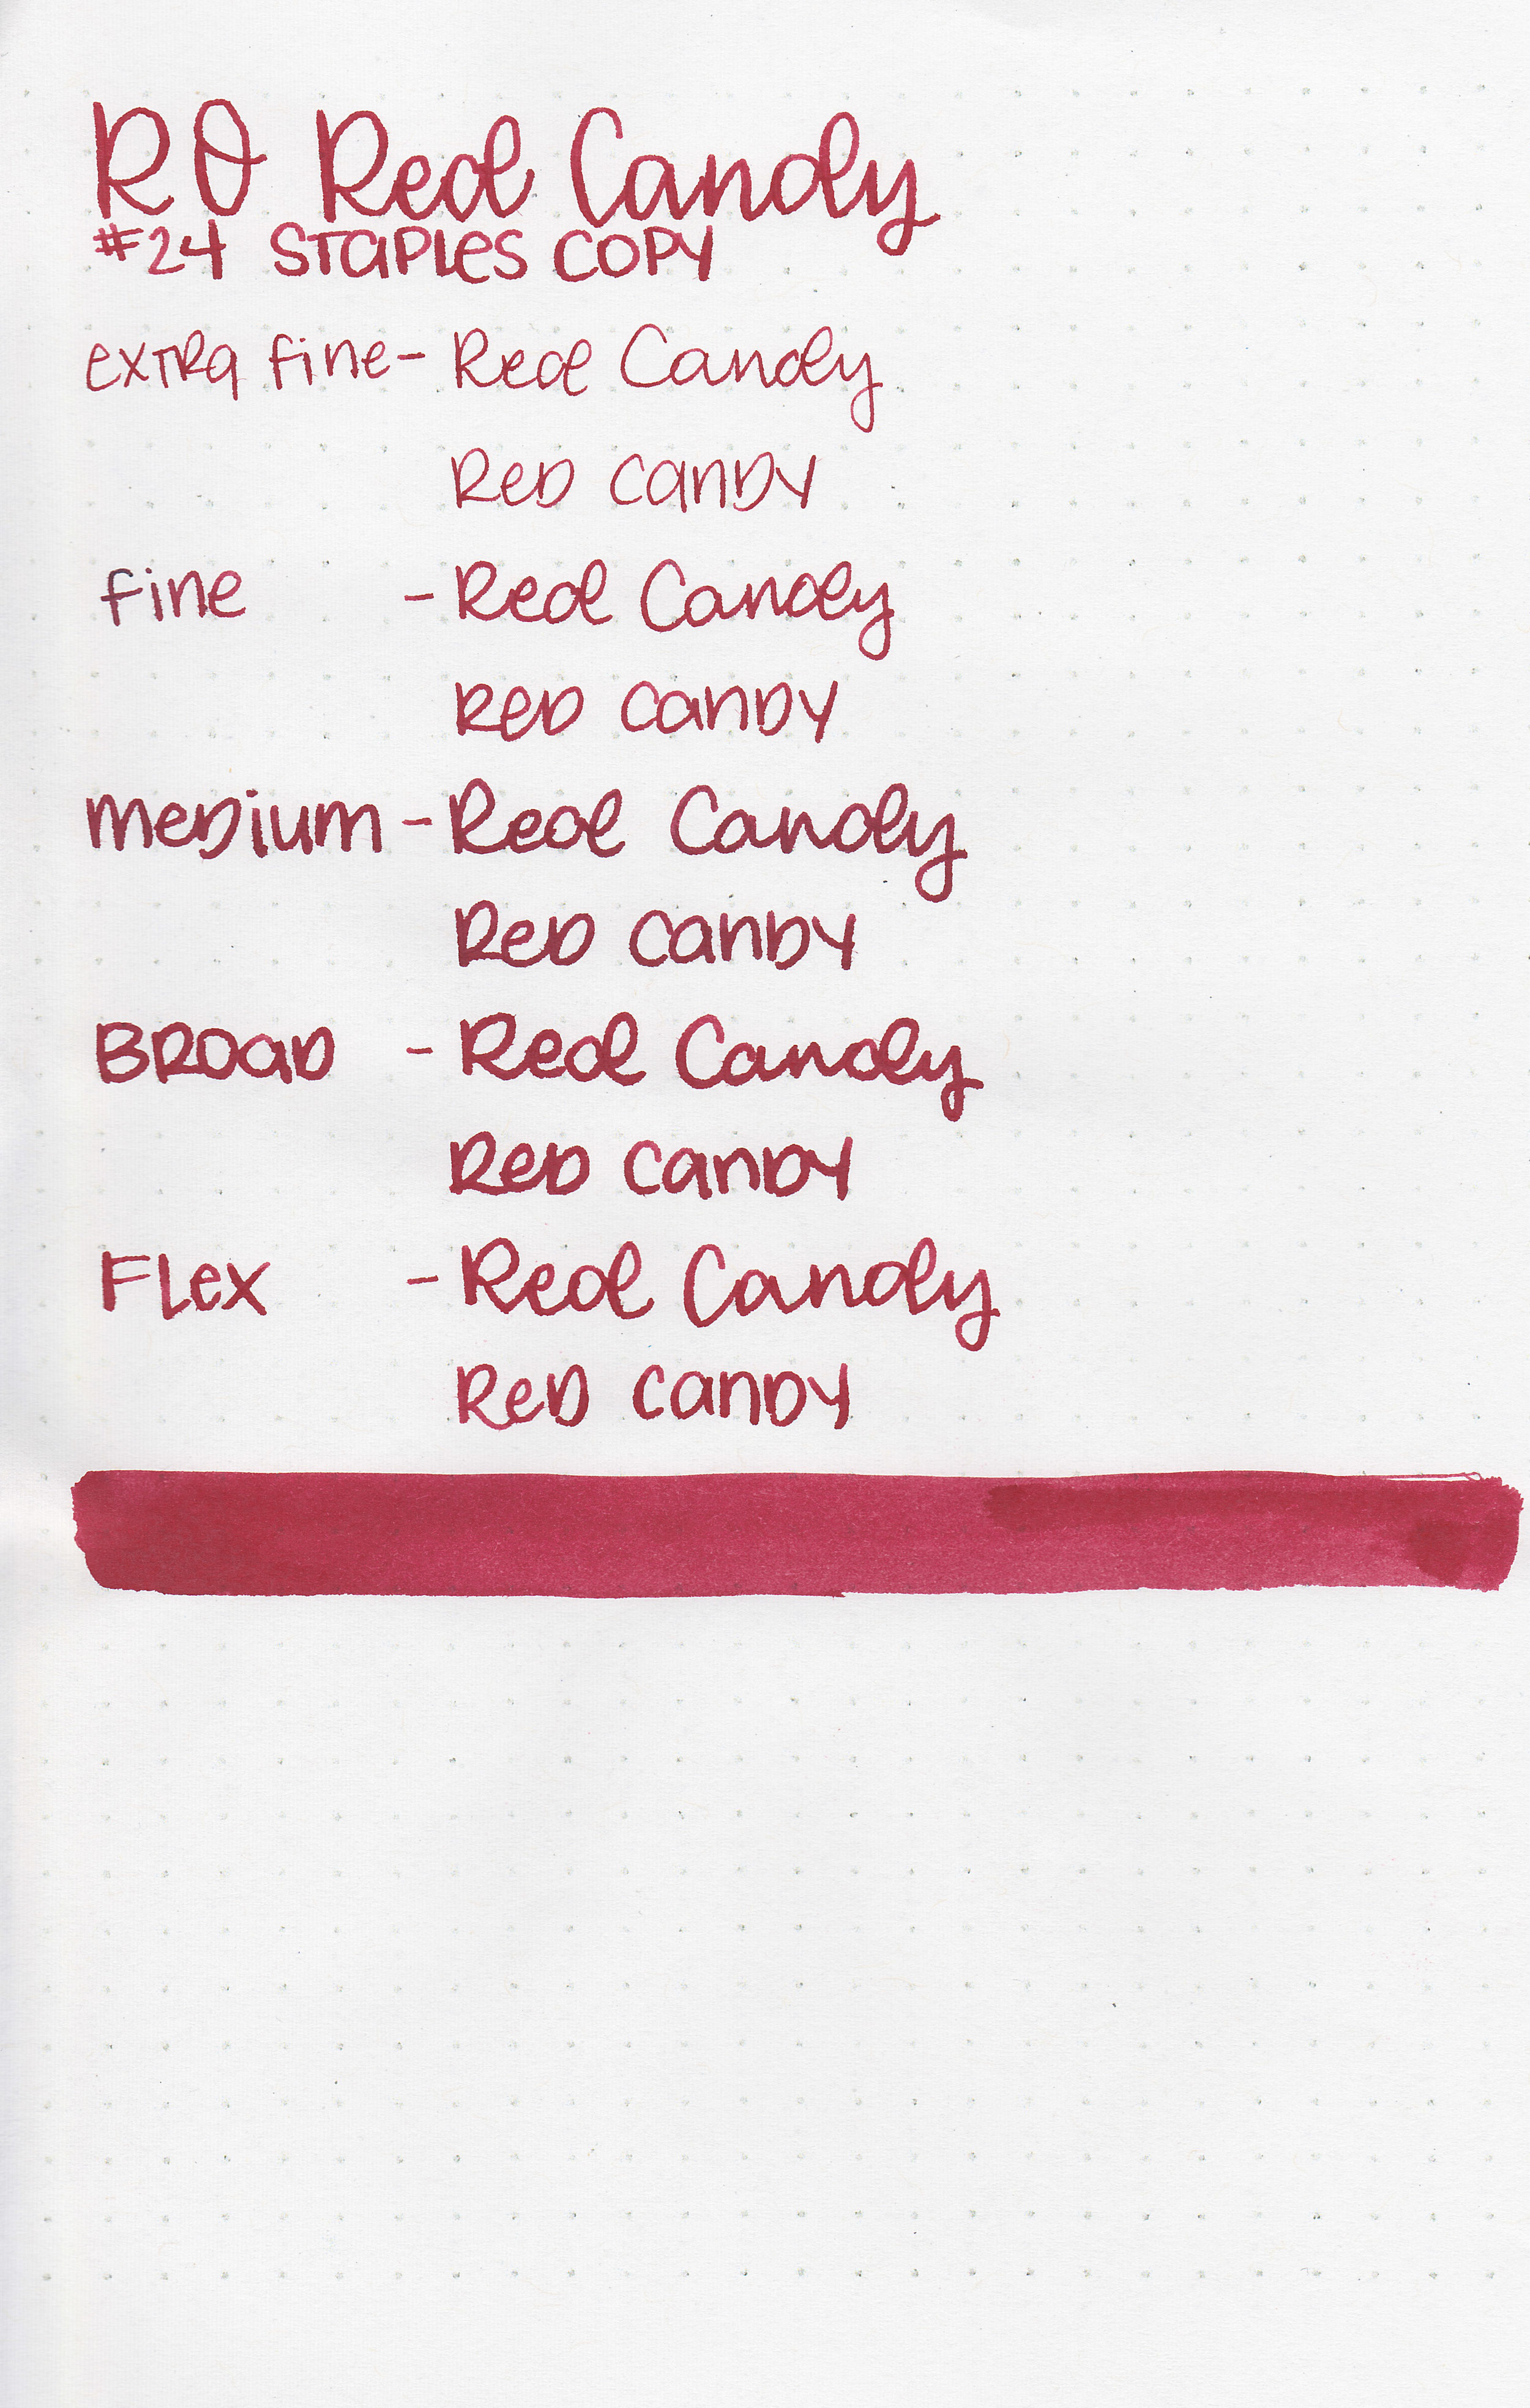 RO Red Candy
#24 STAPLES COPY
extra fine - Red Candy
Red Candy
fine - Red Candy
Red Candy
medium - Red Candy
Red Candy
Broad - Red Candy
Red Candy
Flex - Red Candy
Red Candy